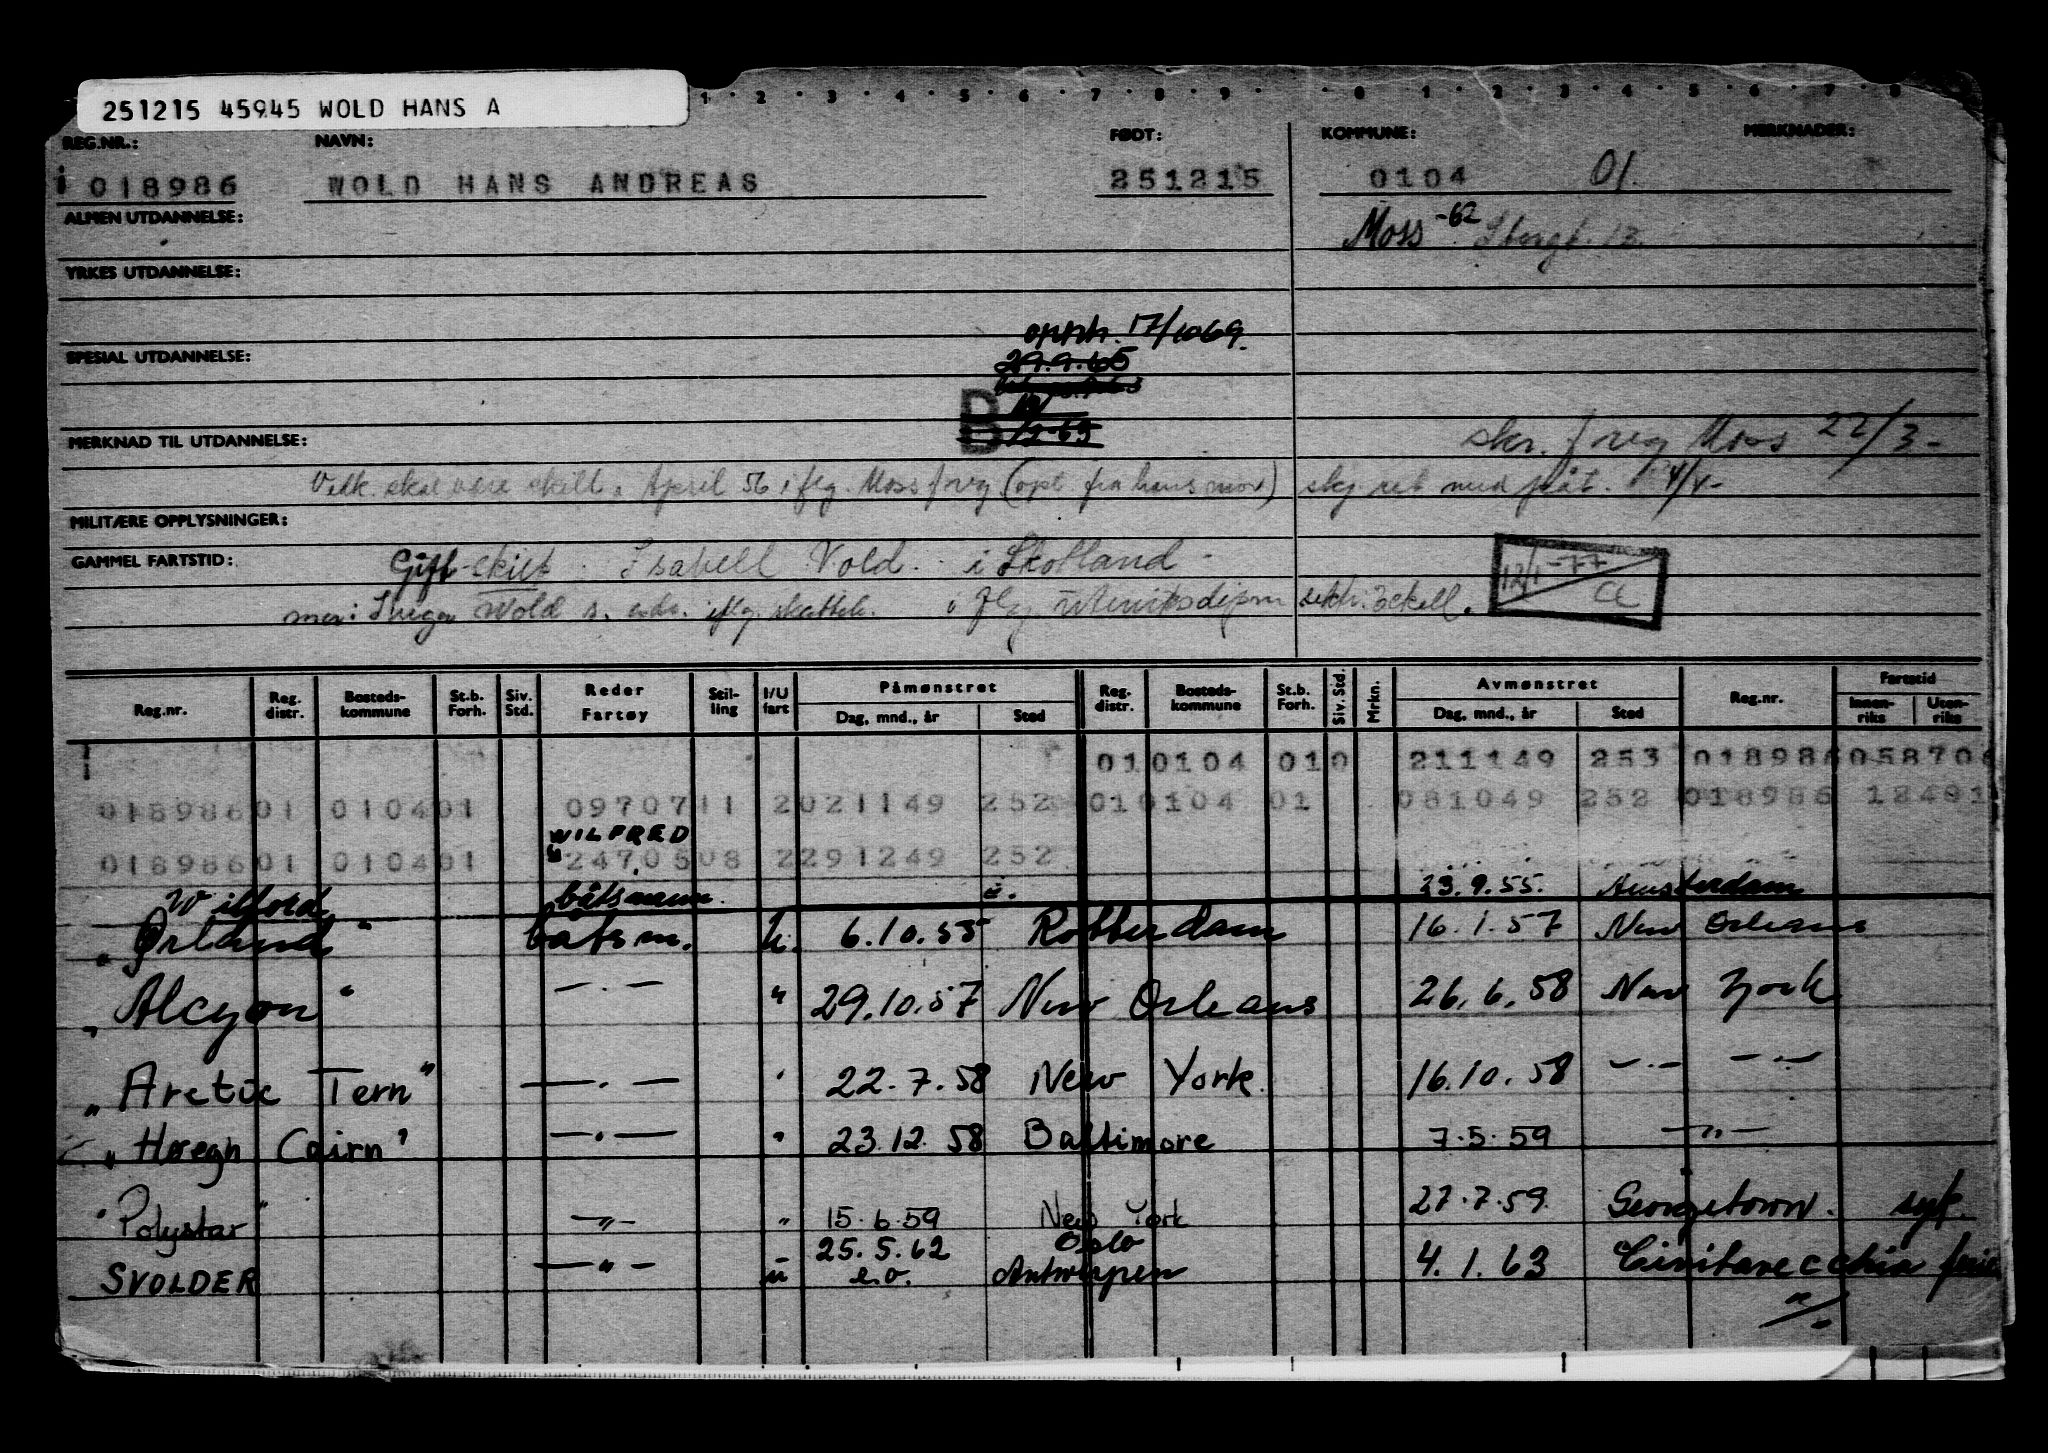 251215 45945 WOLD HANS A
1 · 2 · 3 · 4 · 5 · 6 · 7 · 8 · 9 · · 0 · 1 · 2 · 3 · 4 · 5 · 6 · 7 · 8
REG.NR.: NAVN: FØDT: KOMMUNE: MERKNADER:
018986 WOLD HANS ANDREAS 251215 0104 01.
ALMEN UTDANNELSE:
Moss -62
YRKES UTDANNELSE:
opph. 17/10 69.
SPESIAL UTDANNELSE:
29.9.65
B
MERKNAD TIL UTDANNELSE:
skr. f reg Moss 22/3-
Vedk. skal være skilt. April 56 i flg. Moss f reg (opl fra hans mor)
MILITÆRE OPPLYSNINGER:
GAMMEL FARTSTID: Gift-skilt. Isabell Vold. i Skotland -
12/1-77
mor: Inga Wold
Reg.nr. Reg. distr. Bosteds-kommune St.b. Forh. Siv. Std. Reder Fartøy Stil-ling I/U fart Påmønstret Dag, mnd., år Sted Reg. distr. Bosteds-kommune St.b. Forh. Siv. Std. Mrkn. Avmønstret Dag, mnd., år Sted Reg.nr. Fartstid Innen-riks Uten-riks
01 0104 01 0 211149 253 018986 058706
018986 01 0104 01 0970711 2 021149 252 01 0104 01 081049 252 018986 18481
WILFRED
018986 01 0104 01 2470508 2 291249 252
Wilford båtsmann 23.9.55. Amsterdam
" Ørland " båtsm. u. 6.10.55 Rotterdam 16.1.57 New Orleans
" Alcyon " — . — " 29.10.57 New Orleans 26.6.58 New York
" Arctic Tern " — . — " 22.7.58 New York. 16.10.58 — . — — . —
" Høegh Cairn " — . — " 23.12.58 Baltimore 7.5.59 — " —
" Polystar " — " — " 15.6.59 New York 27.7.59. Georgetown. syk.
25.5.62 Oslo
SVOLDER — " — u e.o. Antwerpen 4.1.63 Civitavecchia ferie